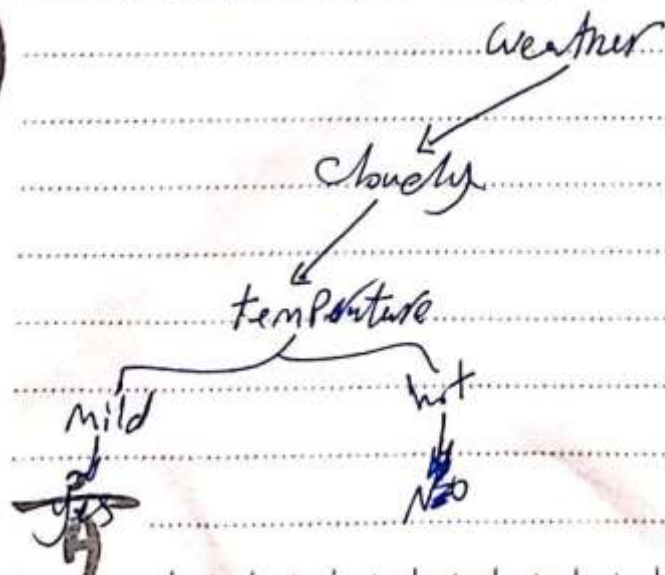 Weather
Cloudy
temperature
mild hot
Yes NO